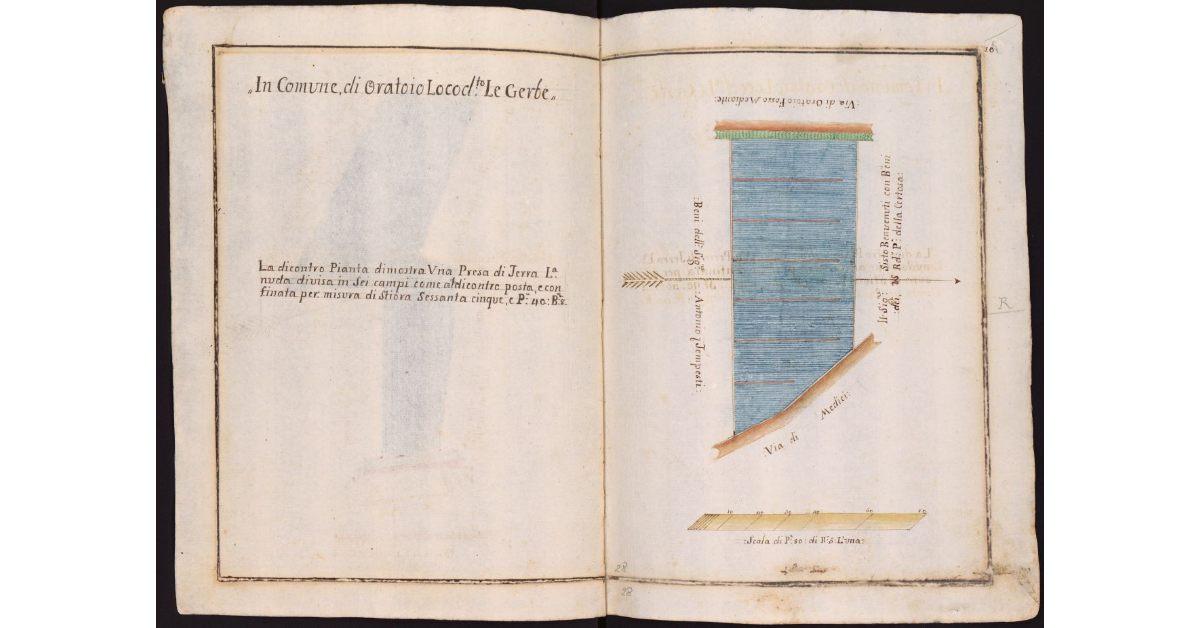 „In Comvne, di Oratoio Locod.to Le Gerbe„
La dicontro Pianta dimostra Vna Presa di Terra L.a
nvda divisa in Sei campi come al dicontro posta, e con
finata per misura di Stiora Sessanta cinque, e P.e 40: B.e 8.
16
:Via di Oratoio Fosso Mediante:
:Beni dell: Sig.re Antonio Tempesti:
Il Sig.re Sisto Benvenuti con Beni
dei, R.di P.i della Certosa:
:Via di Medici:
R
:Scala di P.e 60: di B.e 8: L'vna:
28
28